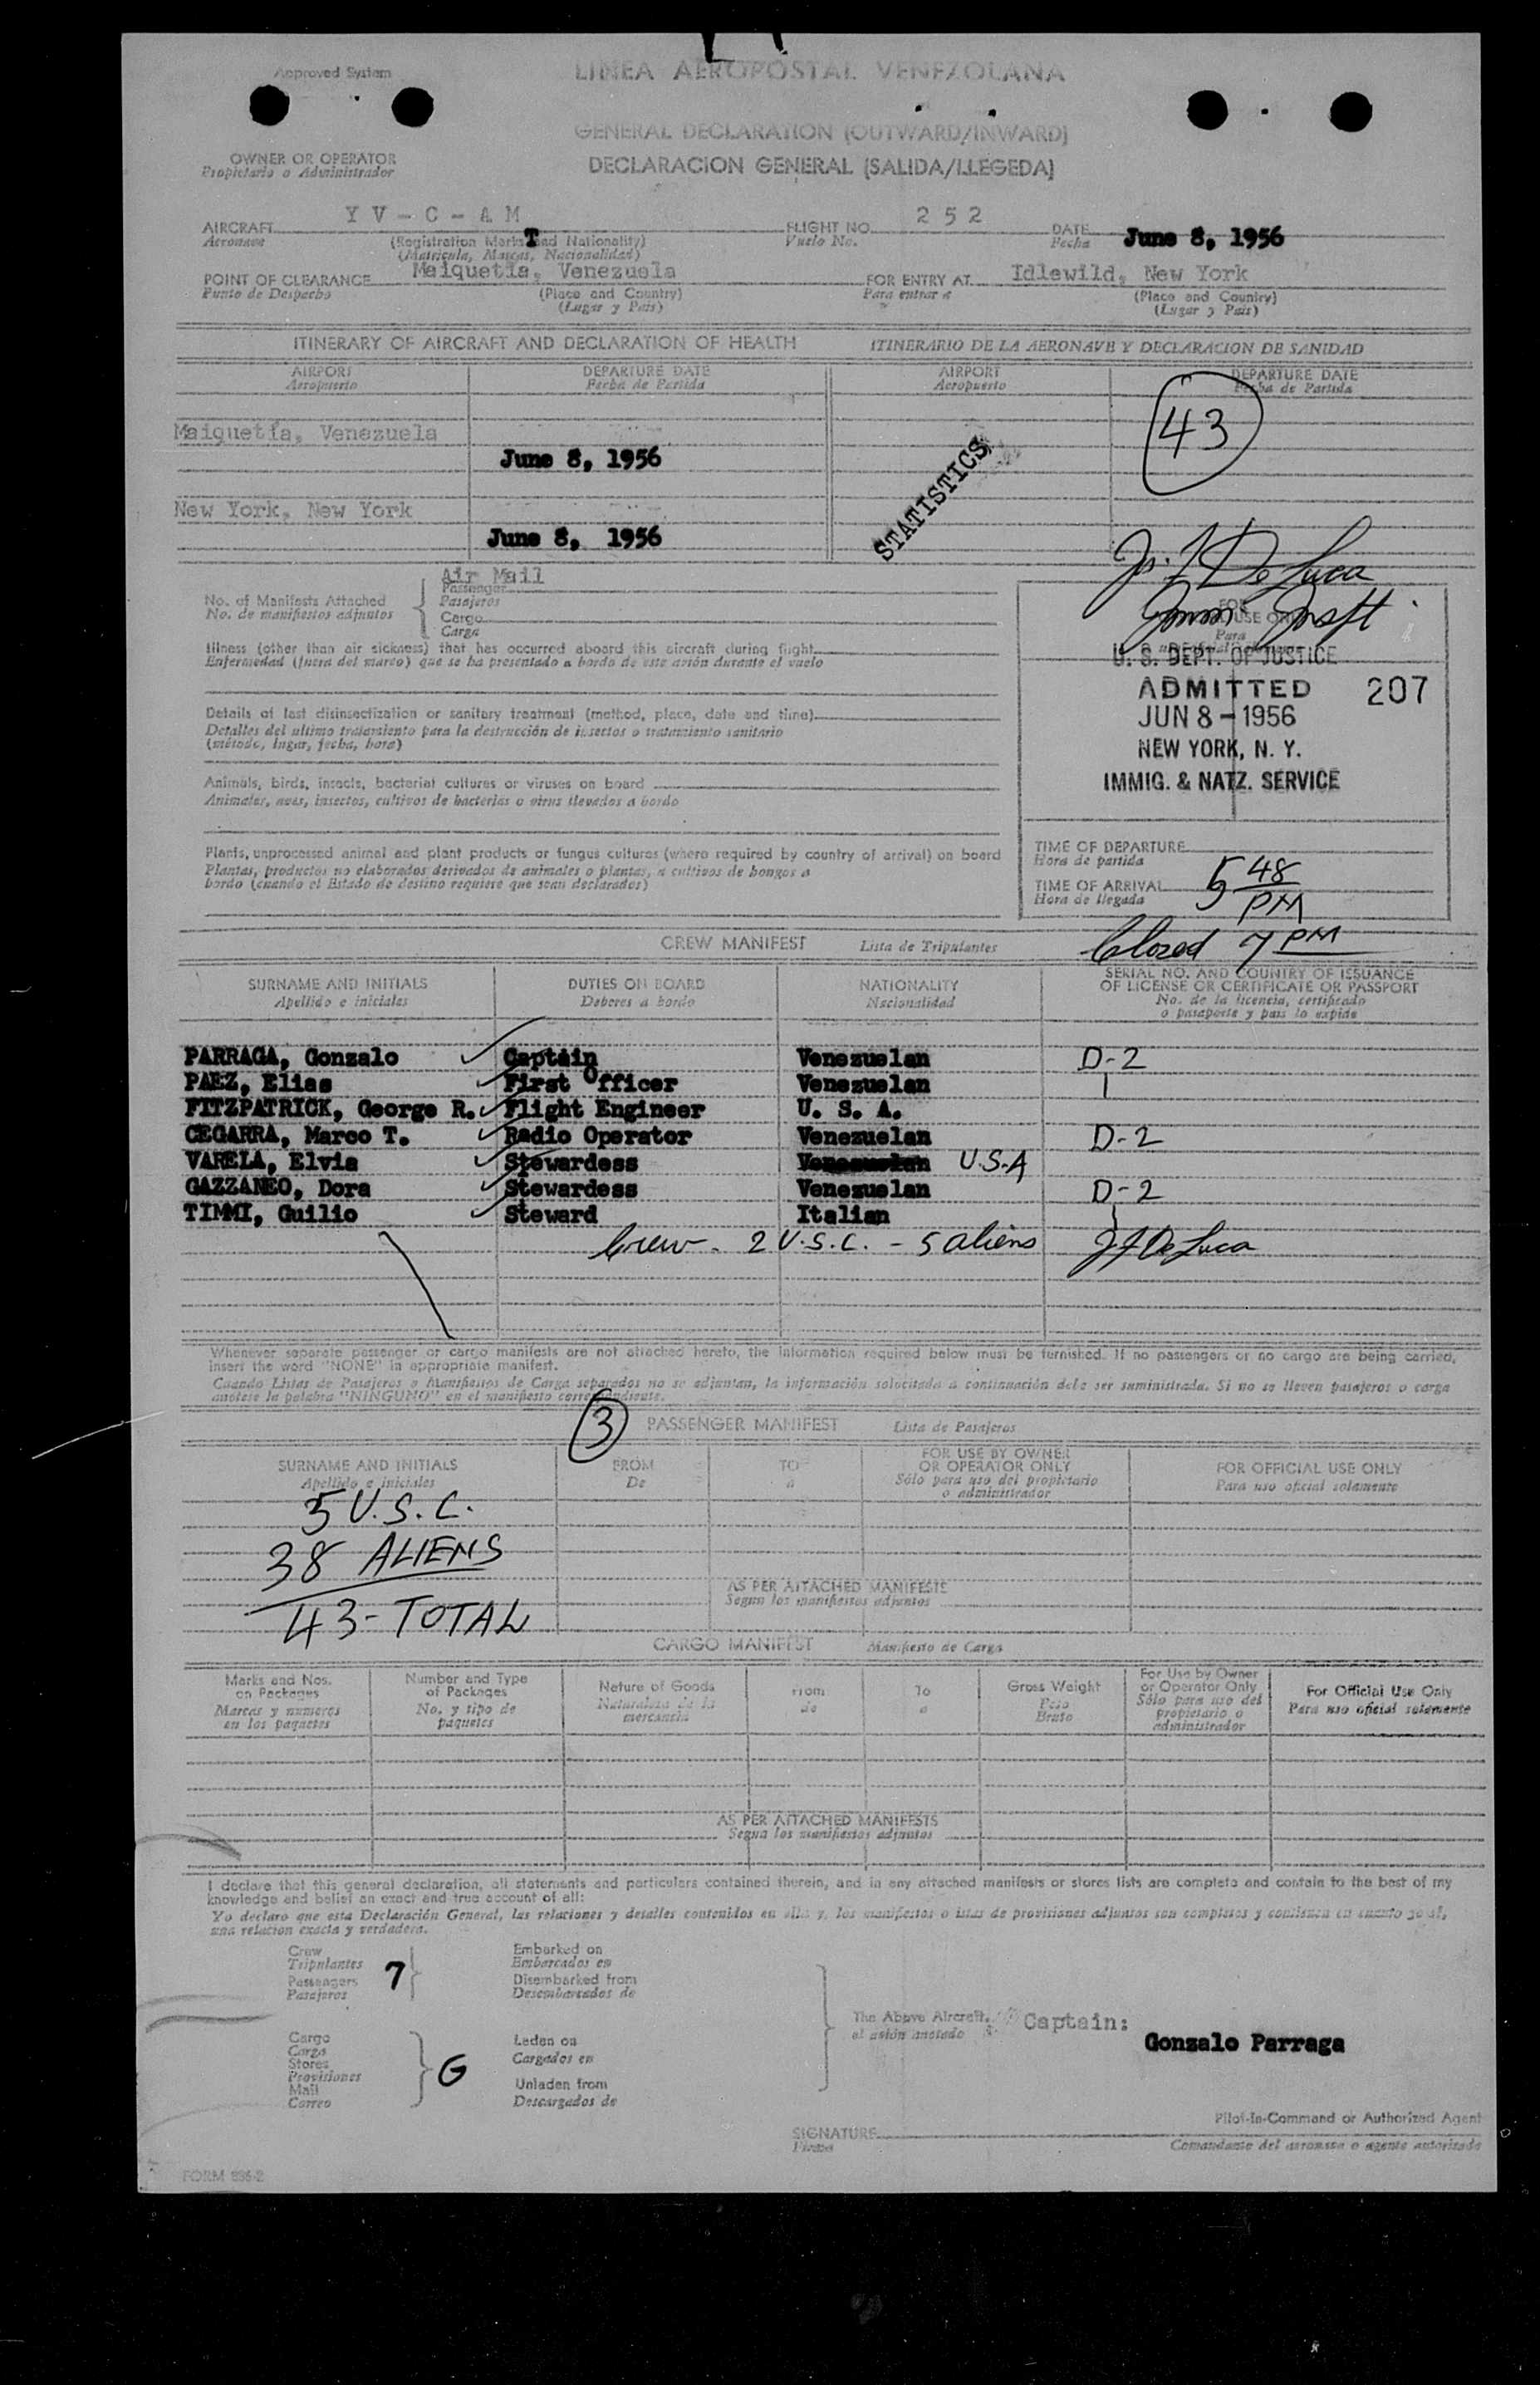 Approved System
LINEA AEROPOSTAL VENEZOLANA
GENERAL DECLARATION (OUTWARD/INWARD)
OWNER OR OPERATOR
Propietario o Administrador
DECLARACION GENERAL (SALIDA/LLEGEDA)
AIRCRAFT Y V - C - A M T FLIGHT NO. 2 5 2 DATE June 8, 1956
Aeronave (Registration Marks and Nationality) Vuelo No. Fecha
(Matricula, Marcas, Nacionalidad)
POINT OF CLEARANCE Maiquetia, Venezuela FOR ENTRY AT Idlewild, New York
Punto de Despacho (Place and Country) Para entrar a (Place and Country)
(Lugar y Pais) (Lugar y Pais)
ITINERARY OF AIRCRAFT AND DECLARATION OF HEALTH ITINERARIO DE LA AERONAVE Y DECLARACION DE SANIDAD
AIRPORT DEPARTURE DATE AIRPORT DEPARTURE DATE
Aeropuerto Fecha de Partida Aeropuerto Fecha de Partida
43
Maiquetía, Venezuela
June 8, 1956
STATISTICS
New York, New York
June 8, 1956
J. F. De Luca
Air Mail
No. of Manifests Attached Passenger
No. de manifiestos adjuntos Pasajeros
Cargo
Carga
FOR
USE
Para
Illness (other than air sickness) that has occurred aboard this aircraft during flight
Enfermedad (fuera del mareo) que se ha presentado a bordo de este avión durante el vuelo
U. S. DEPT. OF JUSTICE
ADMITTED 207
JUN 8 - 1956
NEW YORK, N. Y.
IMMIG. & NATZ. SERVICE
Details of last disinsectization or sanitary treatment (method, place, date and time)
Detalles del ultimo tratamiento para la destrucción de insectos o tratamiento sanitario
(método, lugar, fecha, hora)
Animals, birds, insects, bacterial cultures or viruses on board
Animales, aves, insectos, cultivos de bacterias o virus llevados a bordo
Plants, unprocessed animal and plant products or fungus cultures (where required by country of arrival) on board
Plantas, productos no elaborados derivados de animales o plantas, o cultivos de hongos a
bordo (cuando el Estado de destino requiere que sean declarados)
TIME OF DEPARTURE
Hora de partida
TIME OF ARRIVAL 5 48 PM
Hora de llegada
Closed 7 PM
CREW MANIFEST Lista de Tripulantes
SURNAME AND INITIALS DUTIES ON BOARD NATIONALITY SERIAL NO. AND COUNTRY OF ISSUANCE
Apellido e iniciales Deberes a bordo Nacionalidad OF LICENSE OR CERTIFICATE OR PASSPORT
No. de la licencia, certificado
o pasaporte y pais lo expide
PARRAGA, Gonzalo Captain Venezuelan D-2
PAEZ, Elias First Officer Venezuelan
FITZPATRICK, George R. Flight Engineer U. S. A.
CEGARRA, Marco T. Radio Operator Venezuelan D-2
VARELA, Elvia Stewardess Venezuelan U.S.A
GAZZANEO, Dora Stewardess Venezuelan D-2
TIMMI, Guilio Steward Italian
Crew - 2 U.S.C. - 5 aliens J F De Luca
Whenever separate passenger or cargo manifests are not attached hereto, the information required below must be furnished. If no passengers or no cargo are being carried,
insert the word "NONE" in appropriate manifest.
Cuando Listas de Pasajeros o Manifiestos de Carga separados no se adjuntan, la información solicitada a continuación debe ser suministrada. Si no se lleven pasajeros o carga
anótese la palabra "NINGUNO" en el manifiesto correspondiente.
3 PASSENGER MANIFEST Lista de Pasajeros
SURNAME AND INITIALS FROM TO FOR USE BY OWNER FOR OFFICIAL USE ONLY
Apellido e iniciales De a OR OPERATOR ONLY Para uso oficial solamente
Sólo para uso del propietario
o administrador
5 U.S.C.
38 ALIENS
43 - TOTAL
AS PER ATTACHED MANIFESTS
Segun los manifiestos adjuntos
CARGO MANIFEST Manifiesto de Carga
Marks and Nos. Number and Type Nature of Goods From To Gross Weight For Use by Owner For Official Use Only
on Packages of Packages Naturaleza de la de a Peso or Operator Only Para uso oficial solamente
Marcas y numeros No. y tipo de mercancia Bruto Sólo para uso del
en los paquetes paquetes propietario o
administrador
AS PER ATTACHED MANIFESTS
Segun los manifiestos adjuntos
I declare that this general declaration, all statements and particulars contained therein, and in any attached manifests or stores lists are complete and contain to the best of my
knowledge and belief an exact and true account of all:
Yo declaro que esta Declaración General, las relaciones y detalles contenidos en ella y, los manifiestos o listas de provisiones adjuntos son completos y contienen en cuanto yo sé,
una relacion exacta y verdadera.
Crew Embarked on
Tripulantes 7 Embarcados en
Passengers Disembarked from
Pasajeros Desembarcados de
The Above Aircraft. Captain:
el avión anotado Gonzalo Parraga
Cargo Laden on
Carga Cargados en
Stores
Provisiones G Unladen from
Mail Descargados de
Correo
Pilot-In-Command or Authorized Agent
SIGNATURE
Firma Comandante del aeronave o agente autorizado
FORM 836-2